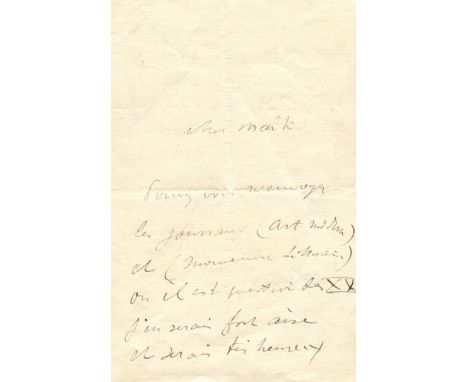 Cher Maître
Pouvez vous m'envoyer
les journaux (art moderne)
et (mouvement littéraire)
où il est question des XX
j'en serais fort aise
et serais très heureux